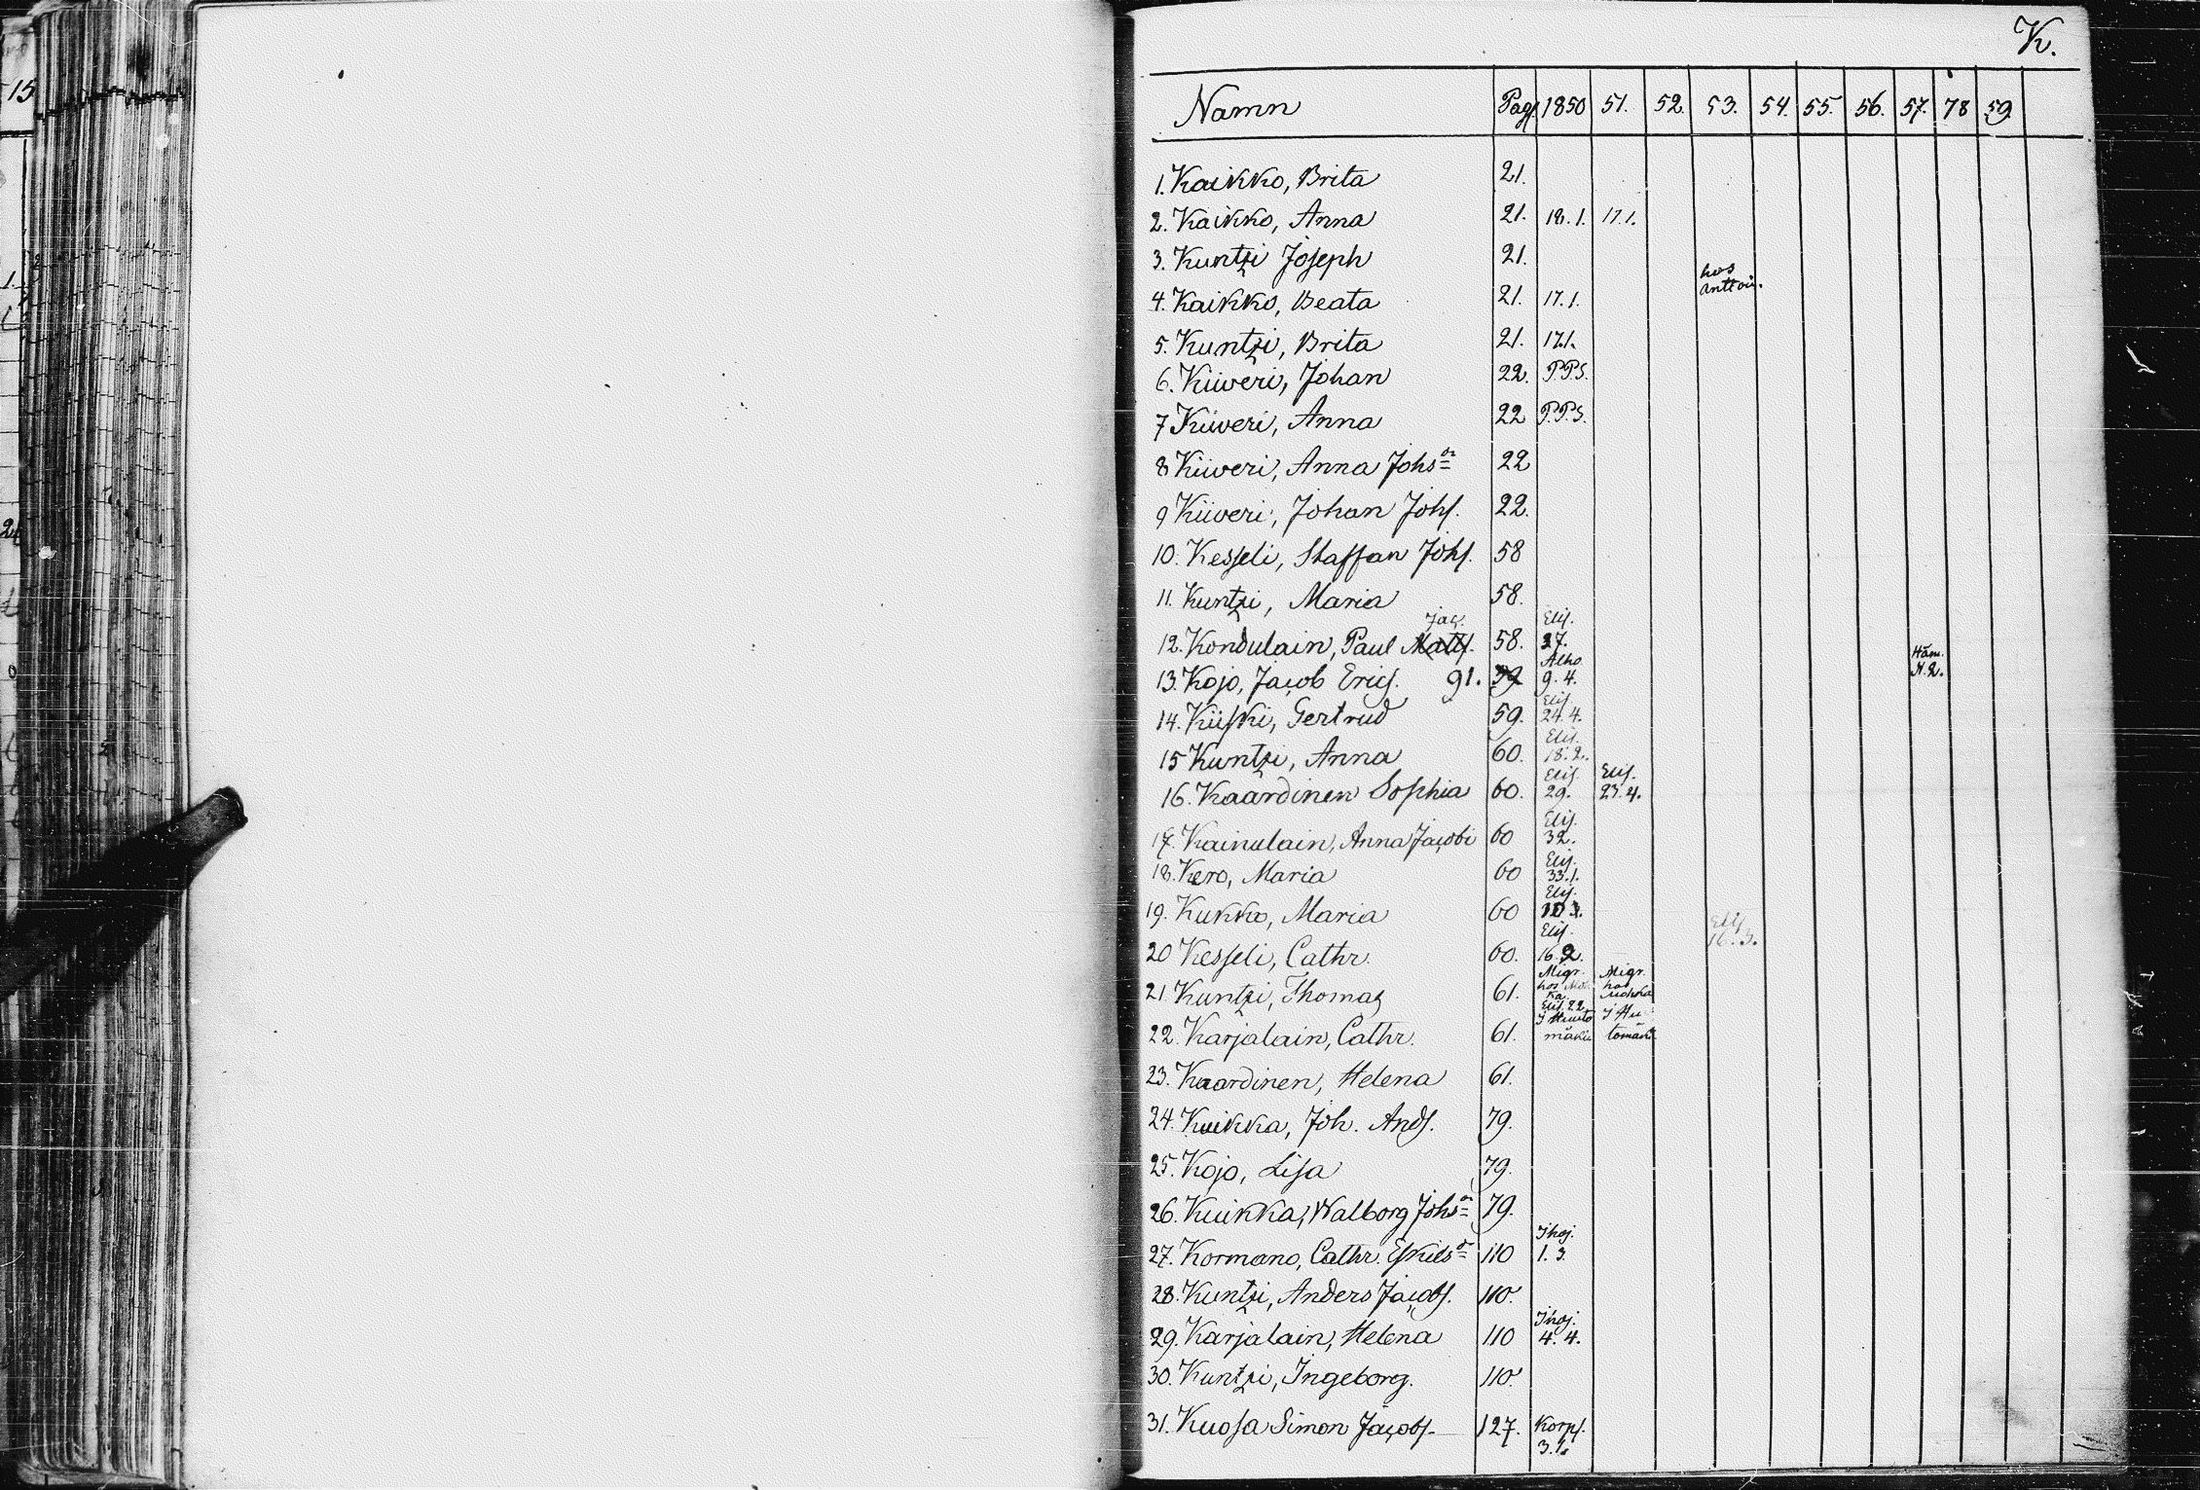 15
K.
Namn Pag. 1850 51. 52. 53. 54. 55. 56. 57. 78 59.
1. Kaikko, Brita 21.
2. Kaikko, Anna 21. 18.1. 17.1.
3. Kuntzi Joseph 21.
hos
Anttoi.
4. Kaikko, Beata 21. 17.1.
5. Kuntzi, Brita 21. 17.1.
6. Kiiveri, Johan 22. P.P.S.
7 Kiiveri, Anna 22 P.P.S.
8 Kiiveri, Anna Johsdr 22
9 Kiiveri, Johan Johs. 22.
10. Kesseli, Staffan Johs. 58
11. Kuntzi, Maria 58.
Jac. Elis.
12. Kondulain, Paul Matts. 58. 27.
Alho Häm.
13. Kojo, Jacob Erics. 91. 39 9.4. N.2.
Elis.
14. Kiiski, Gertrud 59. 24.4.
Elis.
15 Kuntzi, Anna 60. 18.2.
Elis. Elis.
16. Kaardinen Sophia 60. 29. 23.4.
Elis.
17. Kainulain, Anna Jacobi 60 32.
Elis.
18. Kero, Maria 60 33.1.
Elis.
19. Kukko, Maria 60
Elis. Elis
16.3.
20 Kesseli, Cathr. 60. 16.2.
Migr. Migr.
21. Kuntzi, Thomas 61. hos hos
Elis. 22
22. Karjalain, Cathr. 61. mäki
23. Kaardinen, Helena 61.
24. Kuikka, Joh. Ands. 79.
25. Kojo, Lisa 79.
26. Kuikka, Walborg Johsdr 79.
Ihoj.
27. Kormano, Cathr. Eskilsdr 110 1.3.
28. Kuntzi, Anders Jacobs. 110.
Ihoj.
29. Karjalain, Helena 110 4.4.
30. Kuntzi, Ingeborg. 110.
31. Kuosa Simon Jacobs. 127. Korps.
3.1.